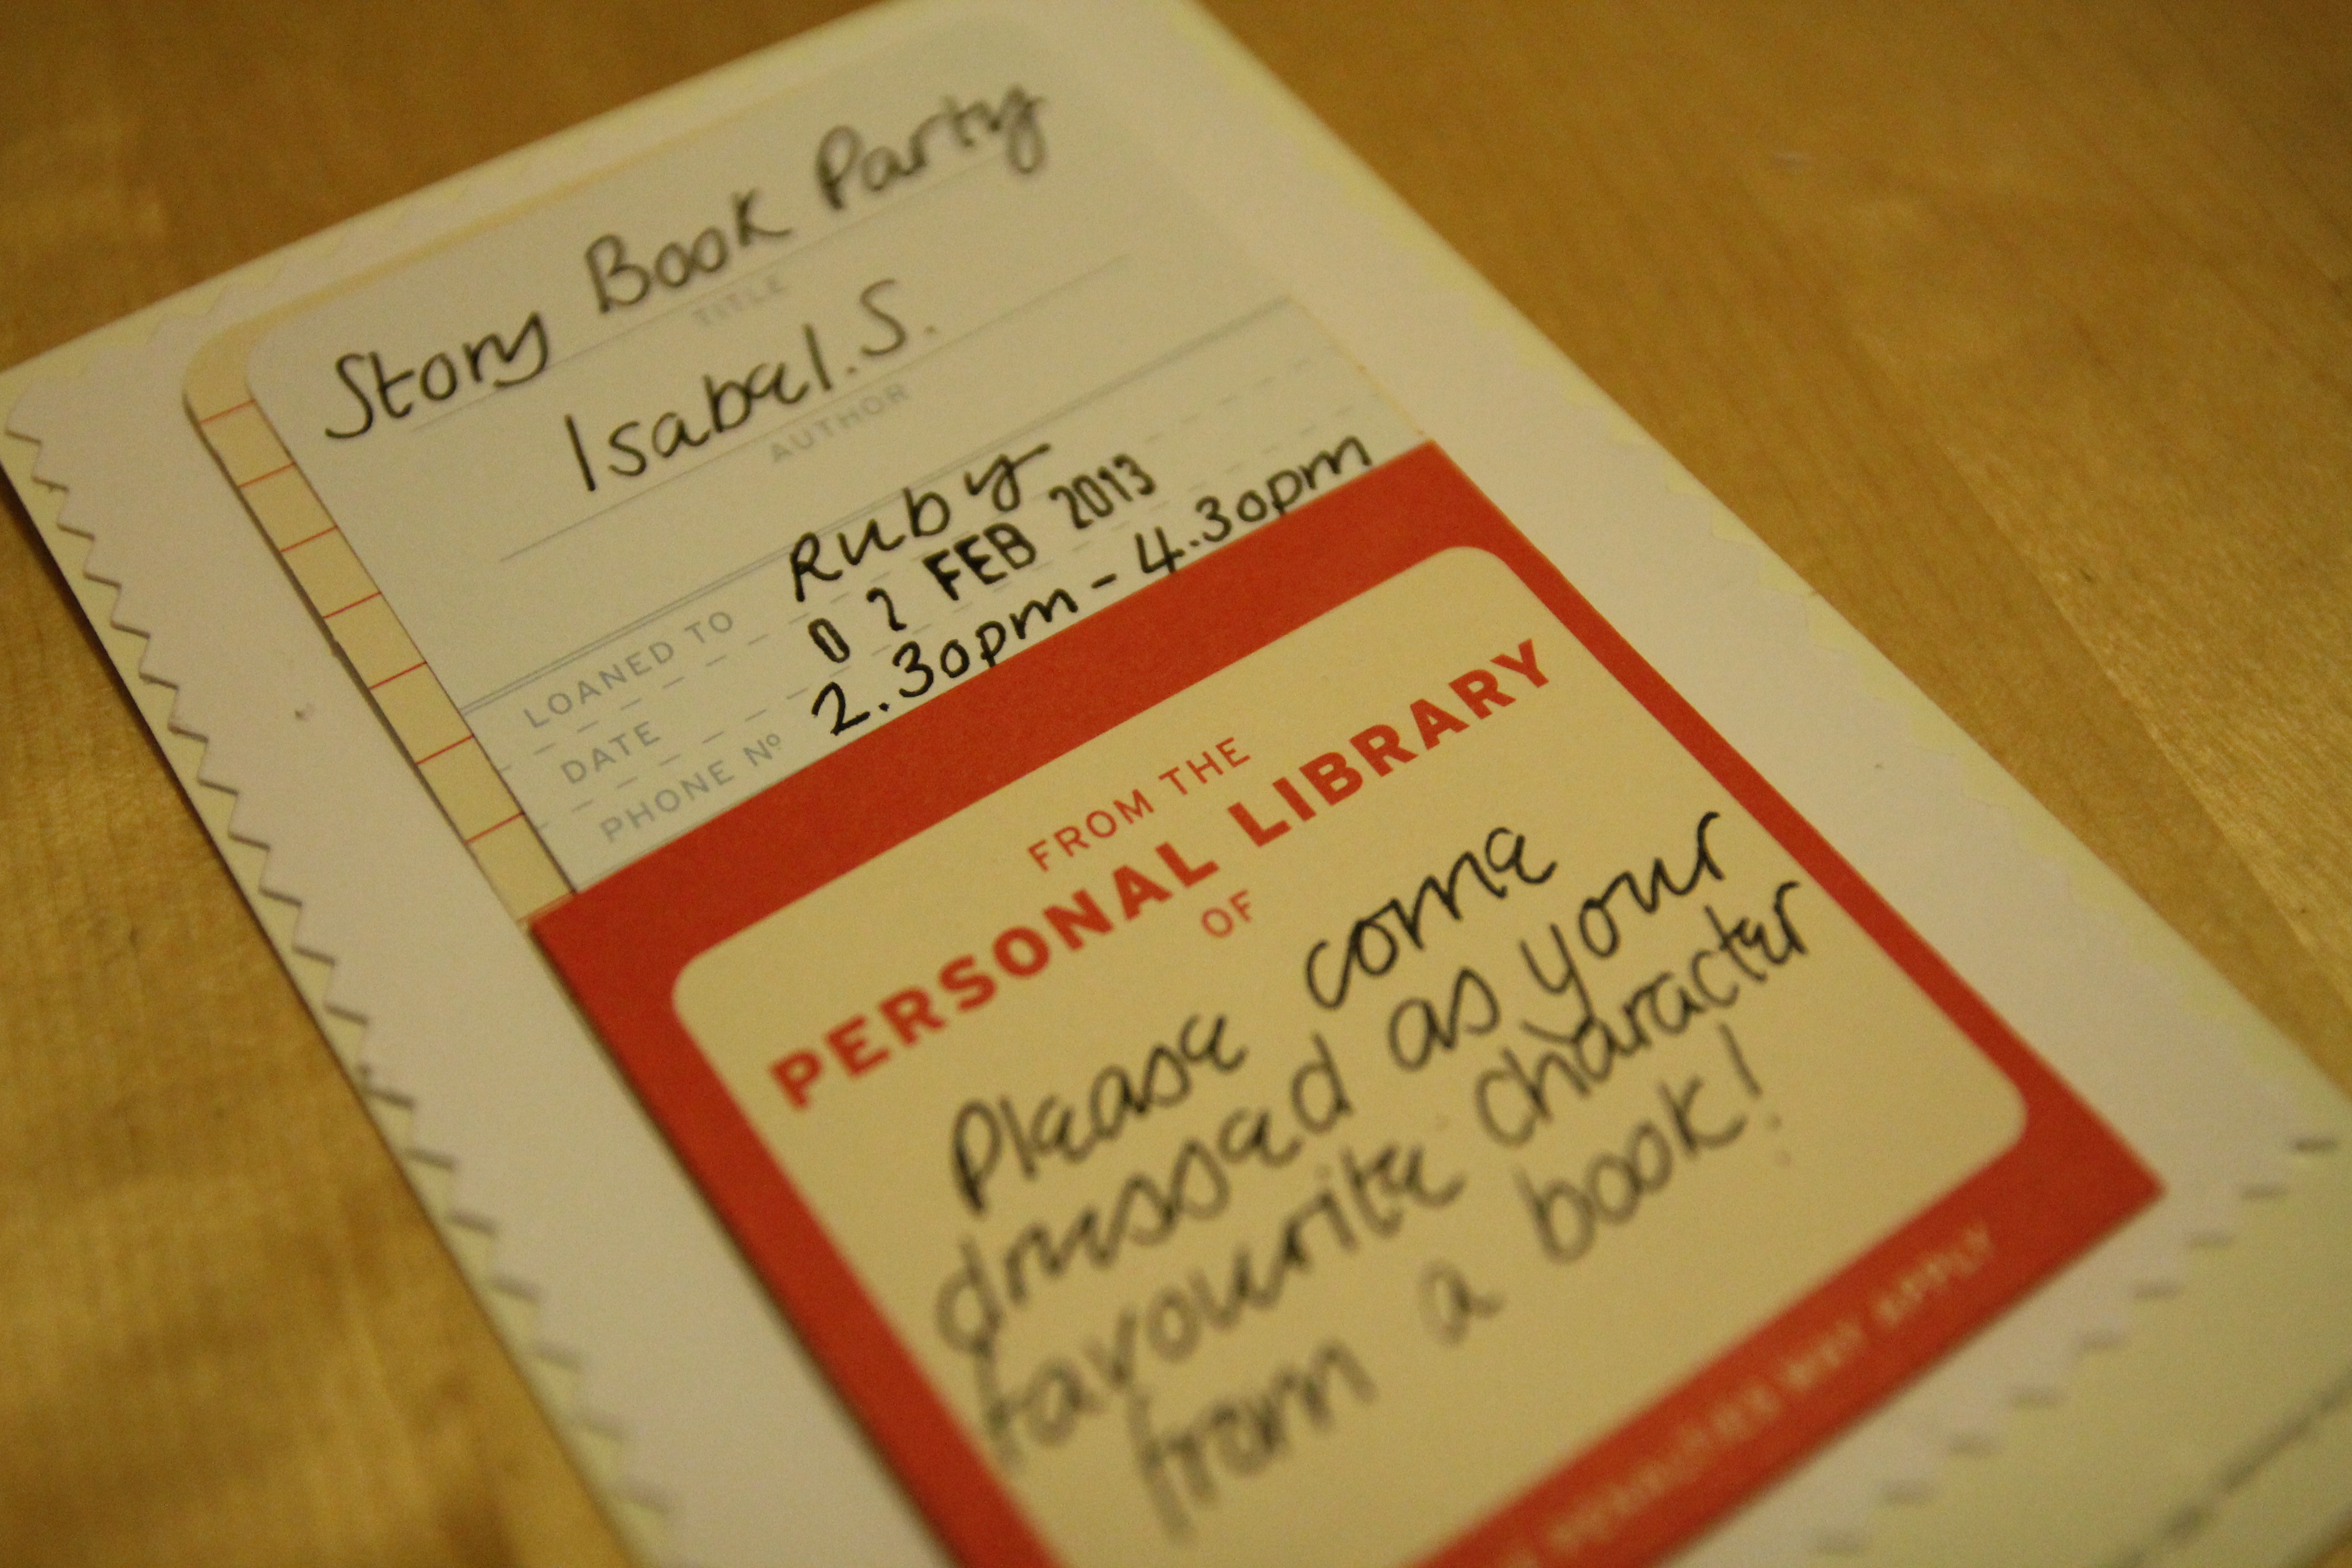 Story Book Party
TITLE
Isabel.S.
AUTHOR
LOANED TO Ruby
DATE 02 FEB 2013
PHONE Nº 2.30pm - 4.30pm
FROM THE
PERSONAL LIBRARY
OF
Please come
dressed as your
favourite character
from a book!
PENALTIES MAY APPLY